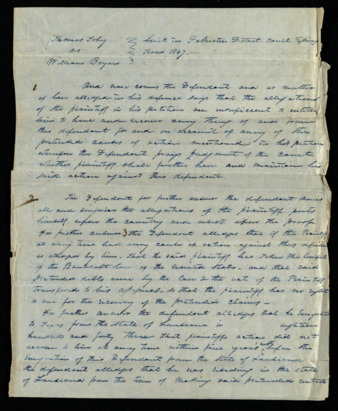 Thomas Toby } Suit in Galveston District Court Spring
vs } Term 1847.
William Bryan }
1 And now comes the Defendant and as matter
of law alleged in his defence says that the allegations
of the plaintiff in his petition are insufficient to entitle
him to have and recover any thing of and from
this defendant for and on account of any of the
pretended causes of action mentioned in his petition
wherefore the Defendant prays judgment of the court
whether plaintiff shall further have and maintain his
said action against this defendant
2 The Defendant for further answer the defendant denies
all and singular the allegations of the plaintiff puts
himself upon the country and
For further answer 3 the Defendant alleges that if the Plaintiff
at any time had any causes of action against this defendant
as alleged by him. That the said plaintiff has taken the benefit
of the Bankrupt law of the United States, and that said
pretended debts were by the law & the act of the Plaintiff
transferred to his assignees, so that the plaintiff has no right
to sue for the recovery of the pretended claims
For further answer the defendant alleges that he emigrated
to Texas from the state of Louisiana in eighteen
hundred and forty Three That plaintiffs action did not
accrue to him at any time within five years before the
emigration of this Defendant from the state of Louisiana
the defendant alleges that he was residing in the state
of Louisiana from the time of making said pretended contract